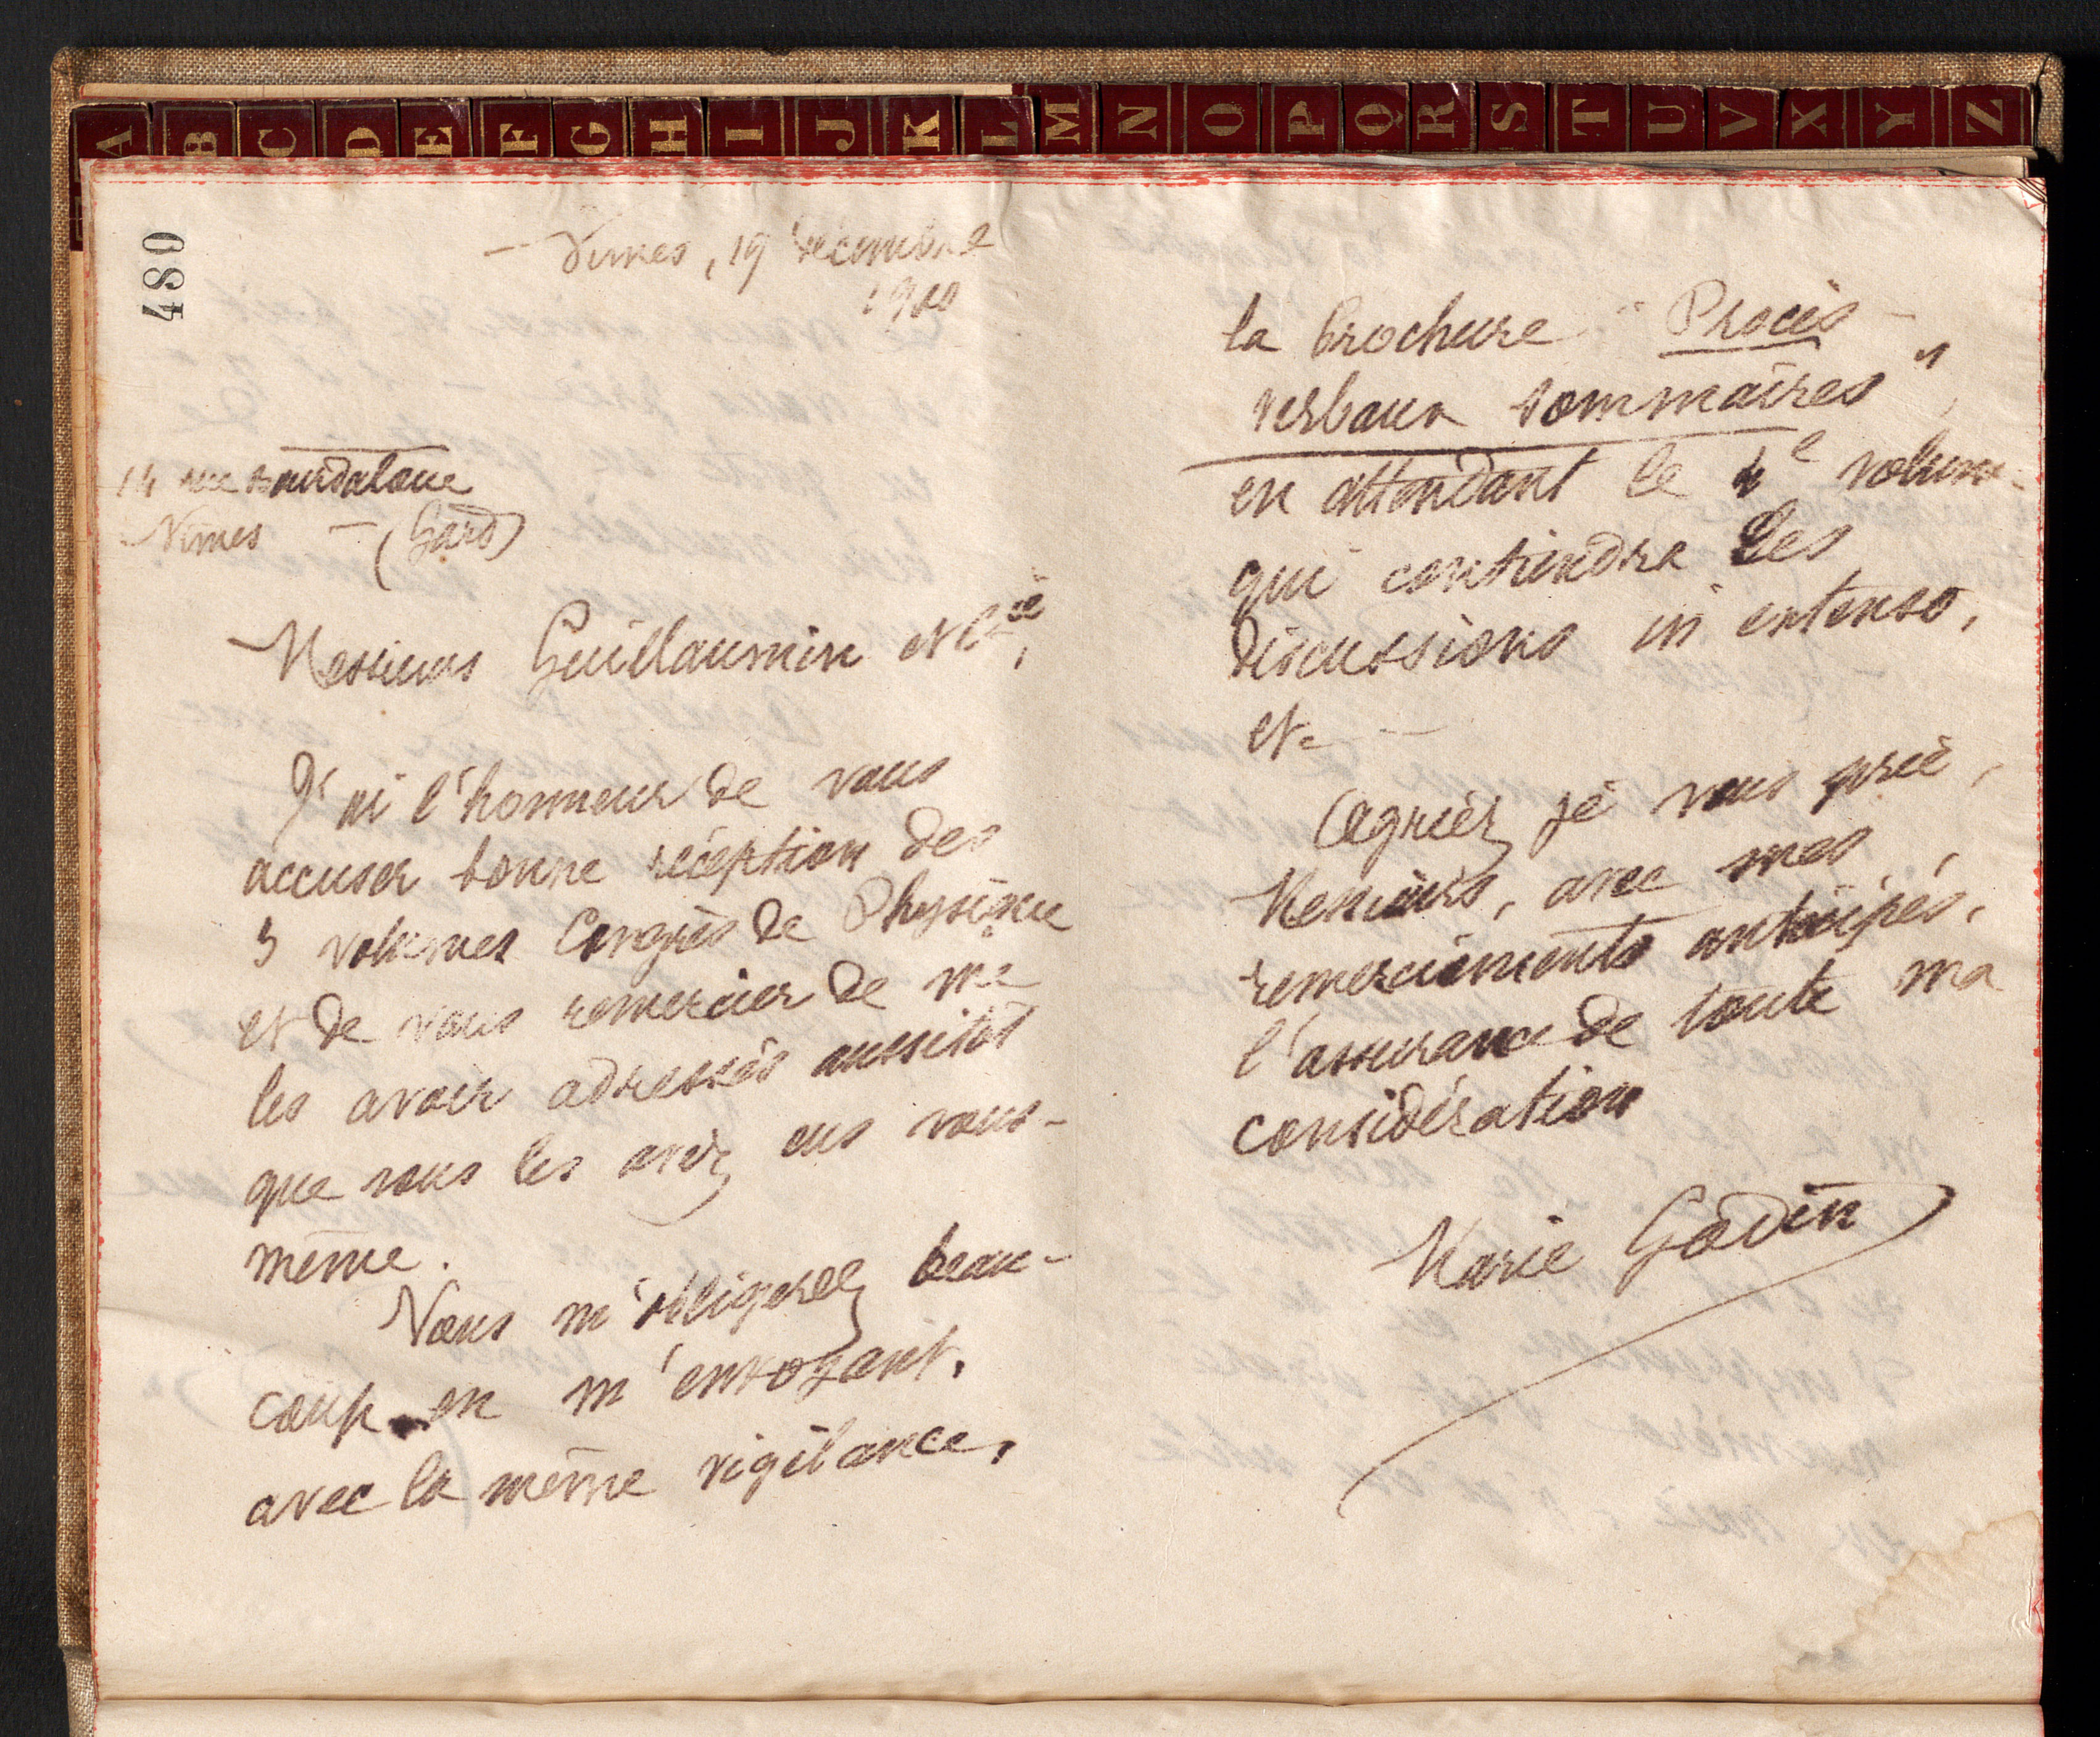 A B C D E F G H I J K L M N O P Q R S T U V X Y Z
480
Nimes, 19 décembre
1900
14 rue Bourdaloue
Nîmes — (Gard)
Messieurs Guillaumin et Cie,
J'ai l'honneur de vous
accuser bonne réception des
3 volumes Congrès de Physique
et de vous remercier de me
les avoir adressés aussitôt
que vous les avez eus vous-
même.
Vous m'obligerez beau-
coup en m'envoyant,
avec la même vigilance,
la brochure "Procès-
verbaux sommaires",
en attendant le 4e volume
qui contiendra les
discussions in extenso,
etc
Agréez je vous prie,
Messieurs, avec mes
remerciements anticipés,
l'assurance de toute ma
considération
Marie Godin